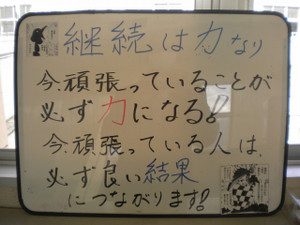 継続は力なり
今、頑張っていることが
必ず力になる!!
今、頑張っている人は、
必ず良い結果
につながります!